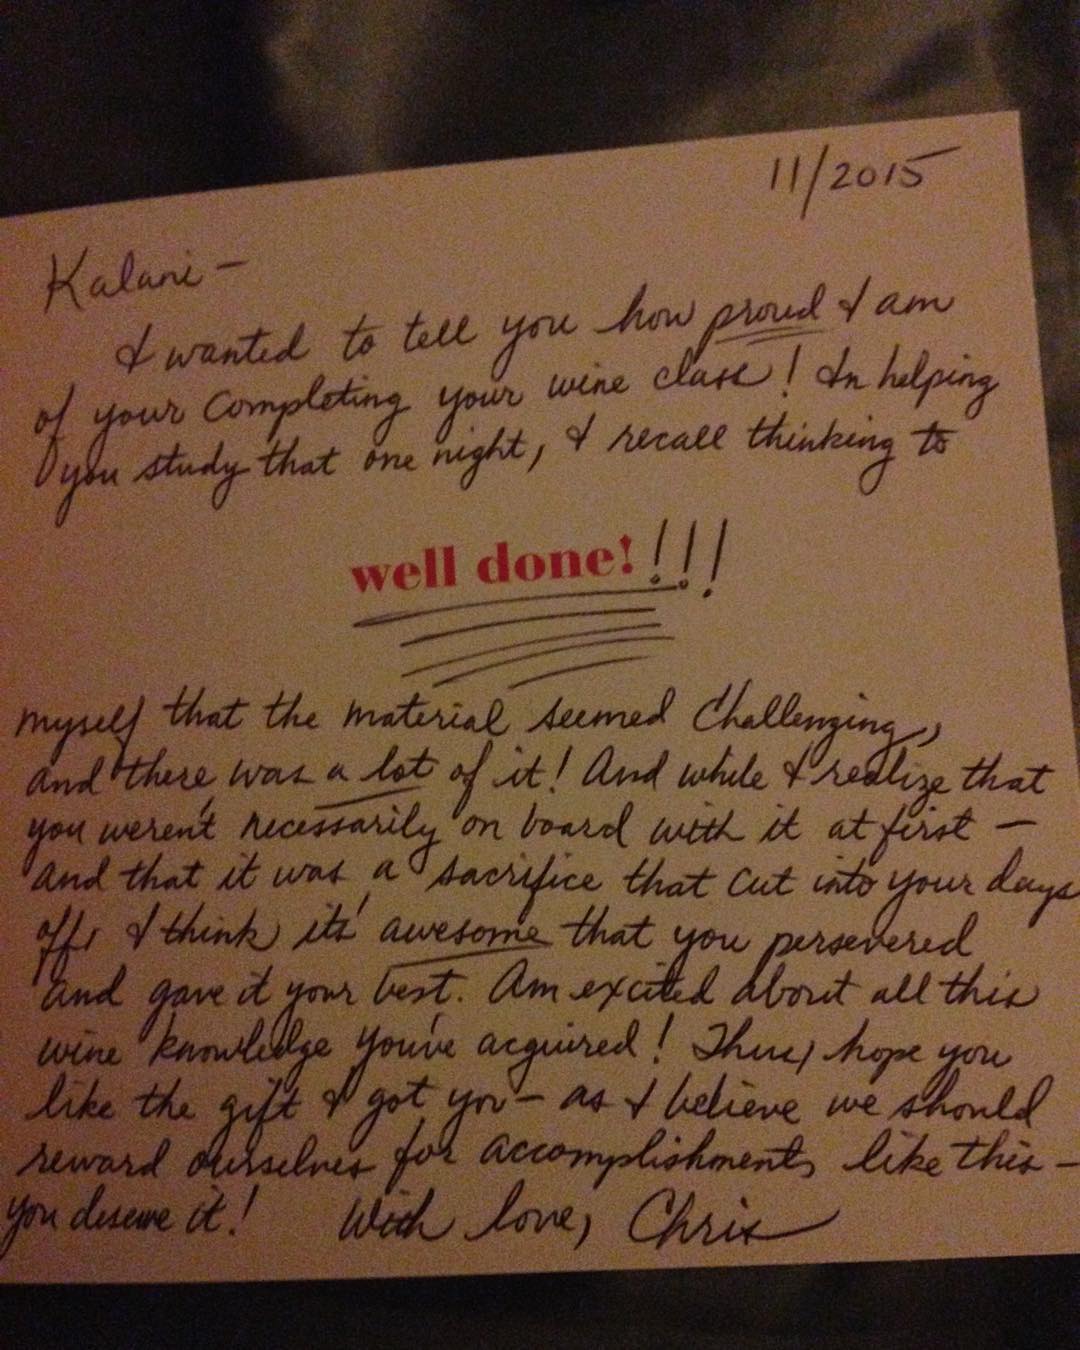 11/2015
Kalani -
I wanted to tell you how proud I am
of your completing your wine class! In helping
you study that one night, I recall thinking to
well done!!!!
myself that the material seemed challenging,
and there was a lot of it! And while I realize that
you weren't necessarily on board with it at first -
and that it was a sacrifice that cut into your days
off, I think its' awesome that you persevered
and gave it your best. Am excited about all this
wine knowledge you've acquired! Thus, hope you
like the gift I got you - as I believe we should
reward ourselves for accomplishments like this -
you deserve it! With love, Chris